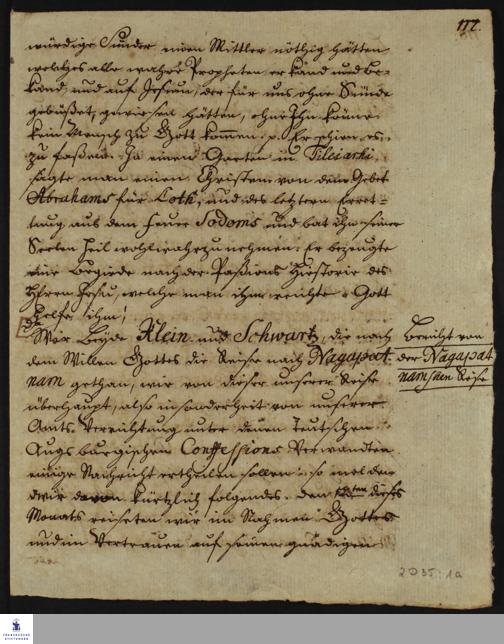 177.
würdige Sünder einen Mittler nöthig hätten
welches alle wahre Propheten erkand und be-
kand, und auf Jesum, der für uns ohne Sünde
gebüßet, gewiesen hätten, ohne Ihn könne
kein Mensch zu Gott kommen. p. Er schien es
zu faßen. In einem Garten in Tileiarhi
sagte man einem Christen von dem Gebet
Abrahams für Loth, und des letztern Erret-
tung aus dem Feuer Sodoms und bat ihn seiner
Seelen Heil wohl wahrzunehmen. Er bezeugte
eine Begierde nach der Paßions Historie des
HErrn Jesu, welche man ihm reichte. Gott
helfe ihm!
Wir beyde Klein und Schwartz, die nach
dem Willen Gottes die Reise nach Nagapat-
nam gethan, wir von dieser unserer Reise
überhaupt, also insonderheit von unserer
Amts-Verrichtung unter denen Teutschen
Augsburgischen Confessions Verwandten
einige Nachricht ertheilen sollen: so melden
wir davon kürtzlich folgendes. Den dieses
Monats reiseten wir im Nahmen Gottes
und im Vertrauen auf seinen gnädigen
Bericht von
der Nagapat
namschen Reise
2 D35 : 1a
FRANCKESCHE
STIFTUNGEN